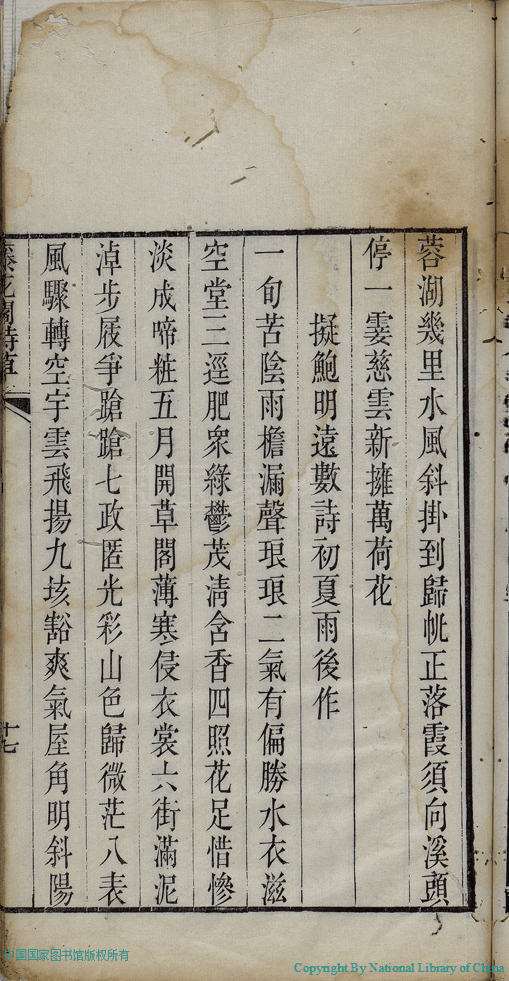 蓉湖幾里水風斜掛到歸㠶正落霞須向溪頭
停一霎慈雲新擁萬荷花
擬鮑明遠數詩初夏雨後作
一旬苦陰雨檐漏聲琅琅二氣有偏勝水衣滋
空堂三逕肥衆綠鬱茂清含香四照花足惜慘
淡成啼粧五月開草閣薄寒侵衣裳六街滿泥
淖步屐爭蹌蹌七政匿光彩山色歸微茫八表
風驟轉空宇雲飛揚九垓豁爽氣屋角明斜陽
十七
中国国家图书馆版权所有
Copyright By National Library of China